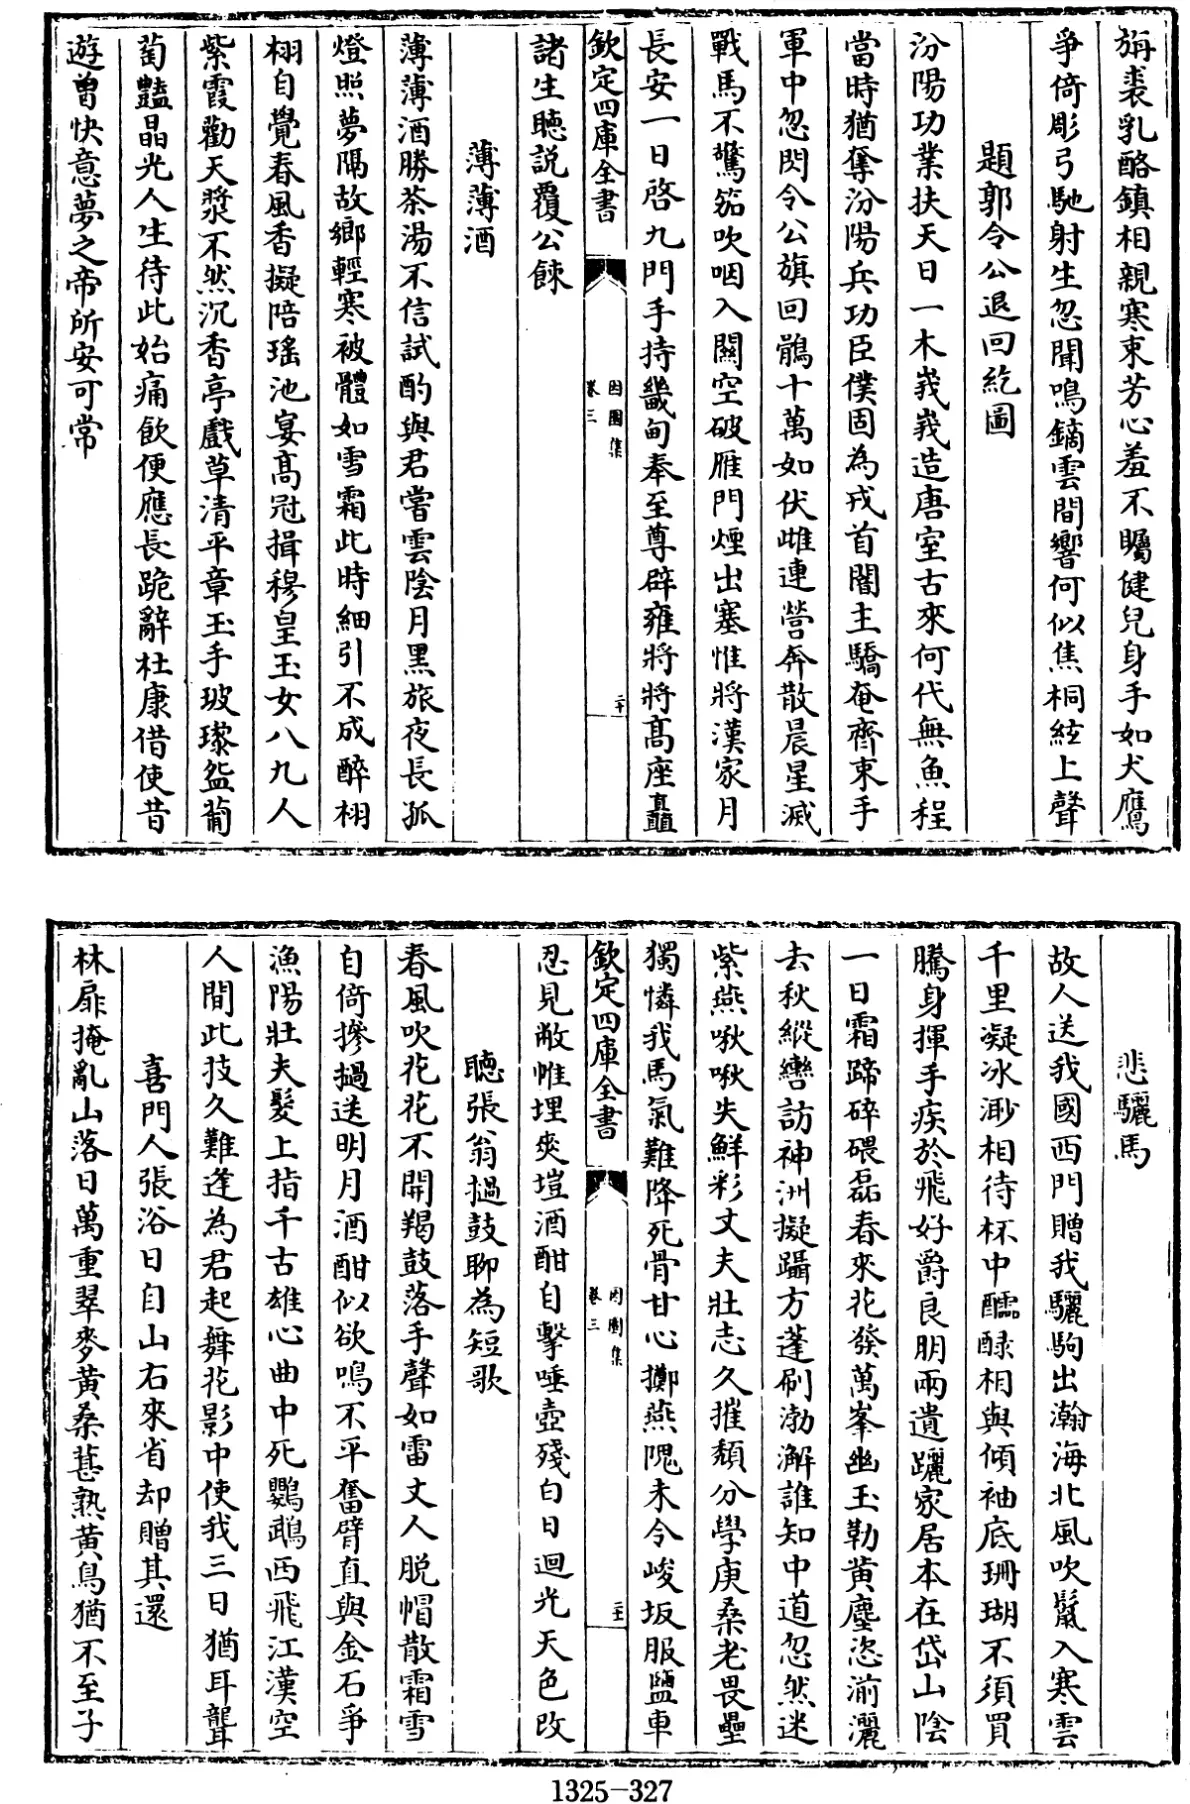 旃裘乳酪鎮相親寒東芳心羞不矚健兒身手如犬鷹
爭倚彫弓馳射生忽聞鳴鏑雲間響何似焦桐絃上聲
題郭令公退回紇圖
汾陽功業扶天日一木峩峩造唐室古來何代無魚程
當時猶奪汾陽兵功臣僕固為戎首闇主驕奄齊束手
軍中忽閃令公旗回鶻十萬如伏雌連營奔散晨星滅
戰馬不驚笳吹咽入關空破雁門煙出塞惟將漢家月
長安一日啓九門手持畿甸奉至尊辟雍將將髙座矗
欽定四庫全書
因園集
卷三
二十
諸生聴説覆公餗
薄薄酒
薄薄酒勝茶湯不信試酌與君嘗雲陰月黒旅夜長孤
燈照夢隔故鄉輕寒被體如雪霜此時細引不成醉栩
栩自覺春風香擬陪瑤池宴髙冠揖穆皇玉女八九人
紫霞勸天漿不然沉香亭戲草清平章玉手玻瓈盌葡
萄豔晶光人生待此始痛飲便應長跪辭杜康借使昔
遊曽快意夢之帝所安可常
悲驪馬
故人送我國西門贈我驪駒出瀚海北風吹鬛入寒雲
千里凝冰渺相待杯中醽醁相與傾袖底珊瑚不須買
騰身揮手疾於飛好爵良朋兩遺躧家居本在岱山陰
一日霜蹄碎碨磊春來花發萬峯幽玉勒黄塵恣湔灑
去秋縱轡訪神洲擬躡方蓬刷渤澥誰知中道忽然迷
紫燕啾啾失鮮彩丈夫壯志久摧頽分學庚桑老畏壘
獨憐我馬氣難降死骨甘心擲燕隗未令峻坂服鹽車
欽定四庫全書
因園集
卷三
二十一
忍見敝帷埋爽塏酒酣自擊唾壺殘白日迴光天色改
聴張翁撾鼓聊為短歌
春風吹花花不開羯鼓落手聲如雷丈人脱帽散霜雪
自倚摻撾送明月酒酣似欲鳴不平奮臂直與金石爭
漁陽壯夫髮上指千古雄心曲中死鸚鵡西飛江漢空
人間此技久難逢為君起舞花影中使我三日猶耳聾
喜門人張浴日自山右來省却贈其還
林扉掩亂山落日萬重翠麥黄桑葚熟黄鳥猶不至子
1325–327